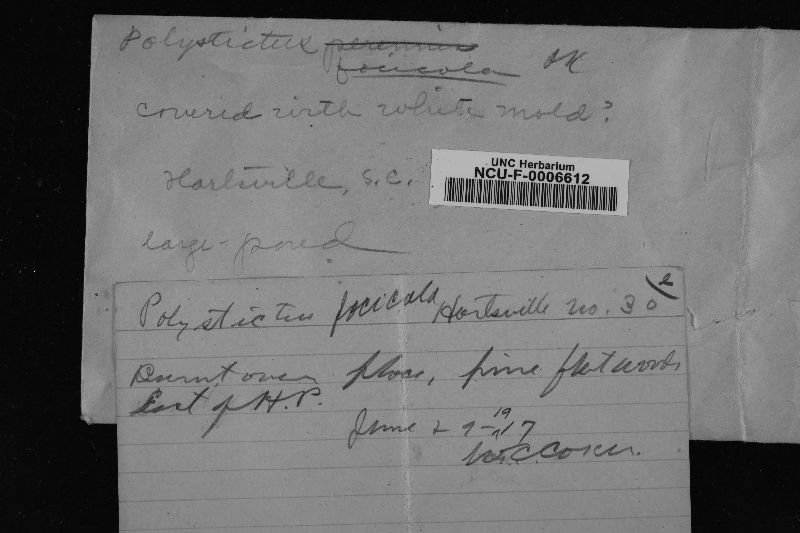 Polystictus perennis
focicola OK
covered with white mold?
Hartsville, S.C.
UNC Herbarium
NCU-F-0006612
large-pored
Polystictus focicola Hartsville no. 30
Burnt over place, pine flatwoods
East of H.P.
June 29-1917
W.C. Coker.